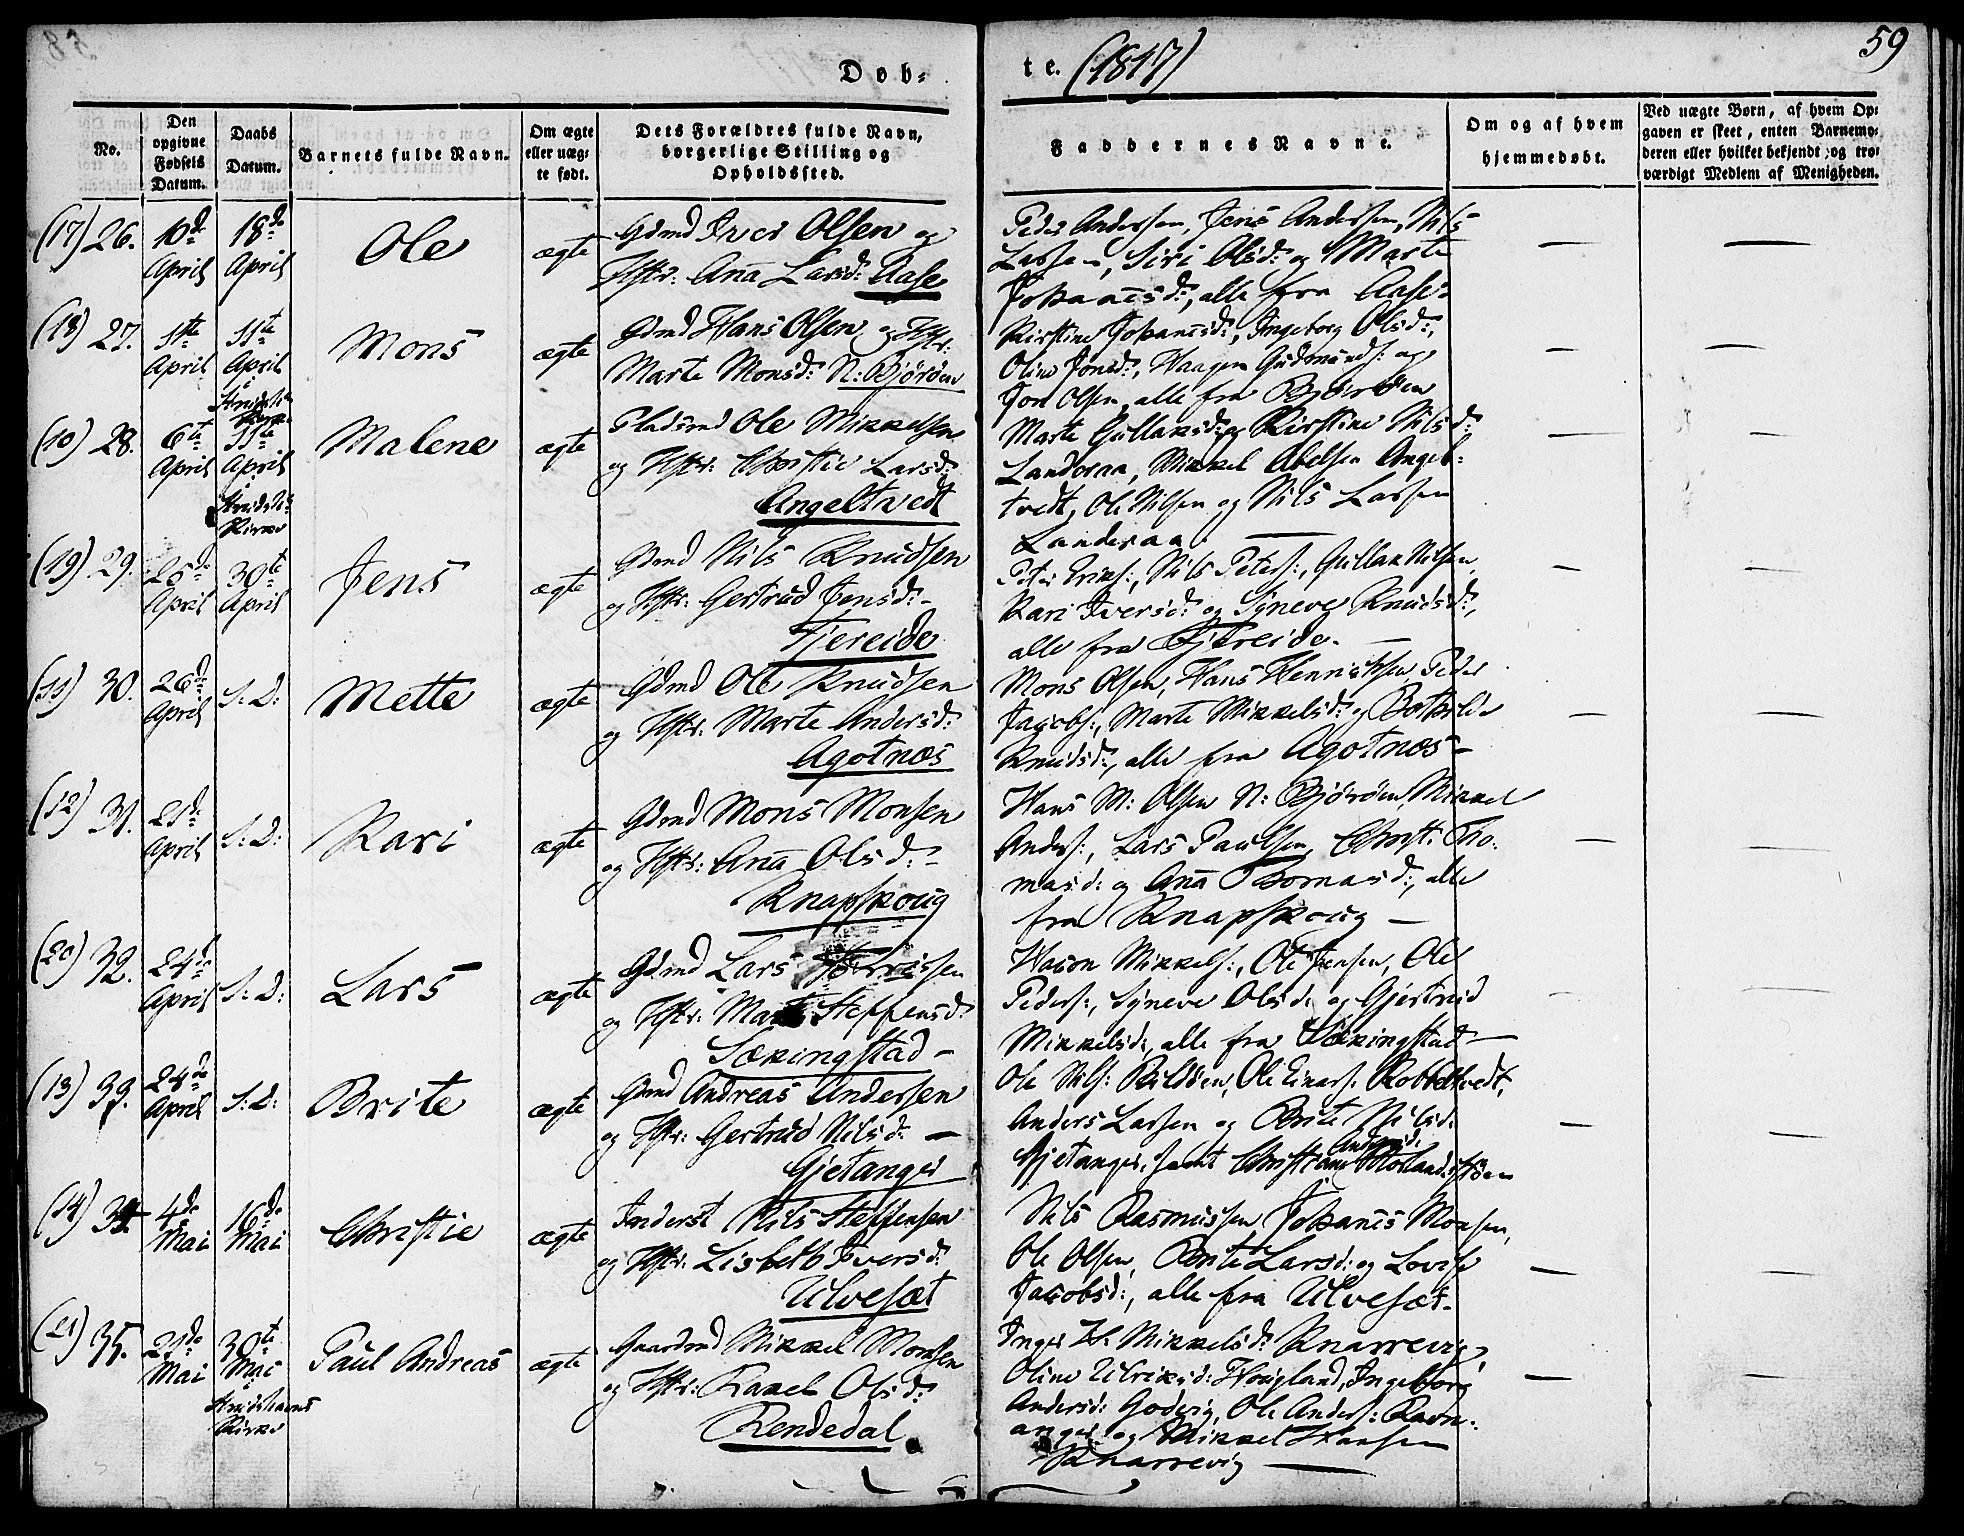 Døb=
te. (1817)
59
No.
Den opgivne Fødsels Datum.
Daabs Datum.
Barnets fulde Navn.
Om ægte eller uæg= te født.
Dets Forældres fulde Navn, borgerlige Stilling og Opholdssted.
Faddernes Navne.
Om og af hvem hjemmedøbt.
Ved uægte Børn, af hvem Op= gaven er skeet, enten Barnemo= deren eller hvilket bekjendt og tro= værdigt Medlem af Menigheden.
(17) 26. 10de April 18de April Ole ægte
Gdmd Iver Olsen og
Hstr: Aña Larsd: Aase
Peder Andersen, Jens Andersen, Nils
Larsen, Siri Olsd: og Marte
Johañesd:, alle fra Aase
(18) 27. 11te April Mons ægte
Gdmd Hans Olsen og Hstr:
Marte Monsd: N: Björöen
Kirstine Johañesd:, Ingeborg Olsd:,
Oline Jonsd:, Haagen Gudmunds: og
Jon Olsen alle fra Björöen
(10) 28. 6te April 11te April i Kirke Malene ægte
Pladsmd Ole Mikkelsen
og Hstr: Christie Larsd:
Angeltvedt
Marte Gullaksd: og Kirstine Nilsd:
Landeraa, Mikkel Abelsen Angel=
tvedt, Ole Nilsen og Nils Larsen
Landeraa
(19) 29. 25de April 30te April Jens ægte
Gdmd Nils Knudsen
og Hstr: Gertrud Jensd:
Fjereide
Peter Eriks:, Nils Peters:, Gullak Nilsen,
Kari Iversd: og Syneve Knudsd:,
alle fra Fjereide.
(11) 30. 26de April S: D: Mette ægte
Gdmd Ole Knudsen
og Hstr: Marte Andersd:
Agotnæs
Mons Olsen, Hans Henriksen, Peder
Jacobs:, Marte Mikkelsd: og Bothilde
Knudsd:, alle fra Agotnæs
(12) 31. 21de April S: D: Kari ægte
Gdmd Mons Monsen
og Hstr: Aña Olsd:
Knapskoug
Hans M: Olsen N: Björöen, Mikkel
Anders:, Lars Paulsen, Christi: Tho=
masd: og Aña Thomasd:, alle
fra Knapskoug
(20) 32. 24de April S: D: Lars ægte
Gdmd Lars
og Hstr: Marte Steffensd:
Sækingstad
Hacon Mikkels:, Ole Jensen, Ole
Peders:, Syneve Olsd: og Gjertrud
Mikkelsd:, alle fra Sækingstad
(13) 33. 24de April S: D: Brite ægte
Gdmd Andreas Andersen
og Hstr: Gertrud Nilsd:
Gjetanger
Ole Nils: Bildöen, Ole Einars: Kobbeltvedt,
Anders Larsen og Brite Nilsd:
Gjetanger, samt Christiane Andersd:
(14) 34 4de Mai 16de Mai Christie ægte
Inderst Nils Steffensen
og Hstr: Lisbeth Iversd:
Ulvesæt
Nils Rasmussen Johañes Monsen,
Ole Olsen, Brite Larsd: og Lovise
Jacobsd:, alle fra Ulvesæt.
(21) 35. 21de Mai 30te Mai i Kirke Paul Andreas ægte
Gaardmd Mikkel Monsen
og Hstr: Rakel Olsd:
Rendedal
Inger H: Mikkelsd: Knarrevig,
Oline Ulriksd: Hougland, Ingeborg
Andersd: Godvig, Ole Anders: Ravn=
anger og Mikkel Hansen
Knarrevig